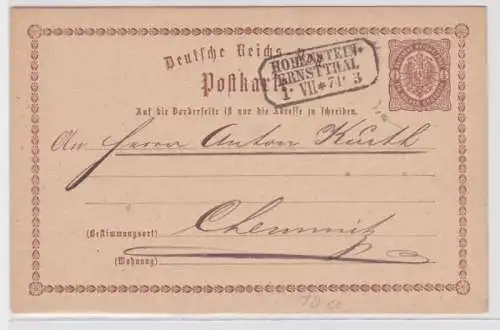 Deutsche Reichs-
Postkar
HOHENSTEIN-
ERNSTTHAL
1 VII * 74 * 3
Auf die Vorderseite ist nur die Adresse zu schreiben.
An Herrn Anton Kürth
(Bestimmungsort) Chemnitz
(Wohnung)